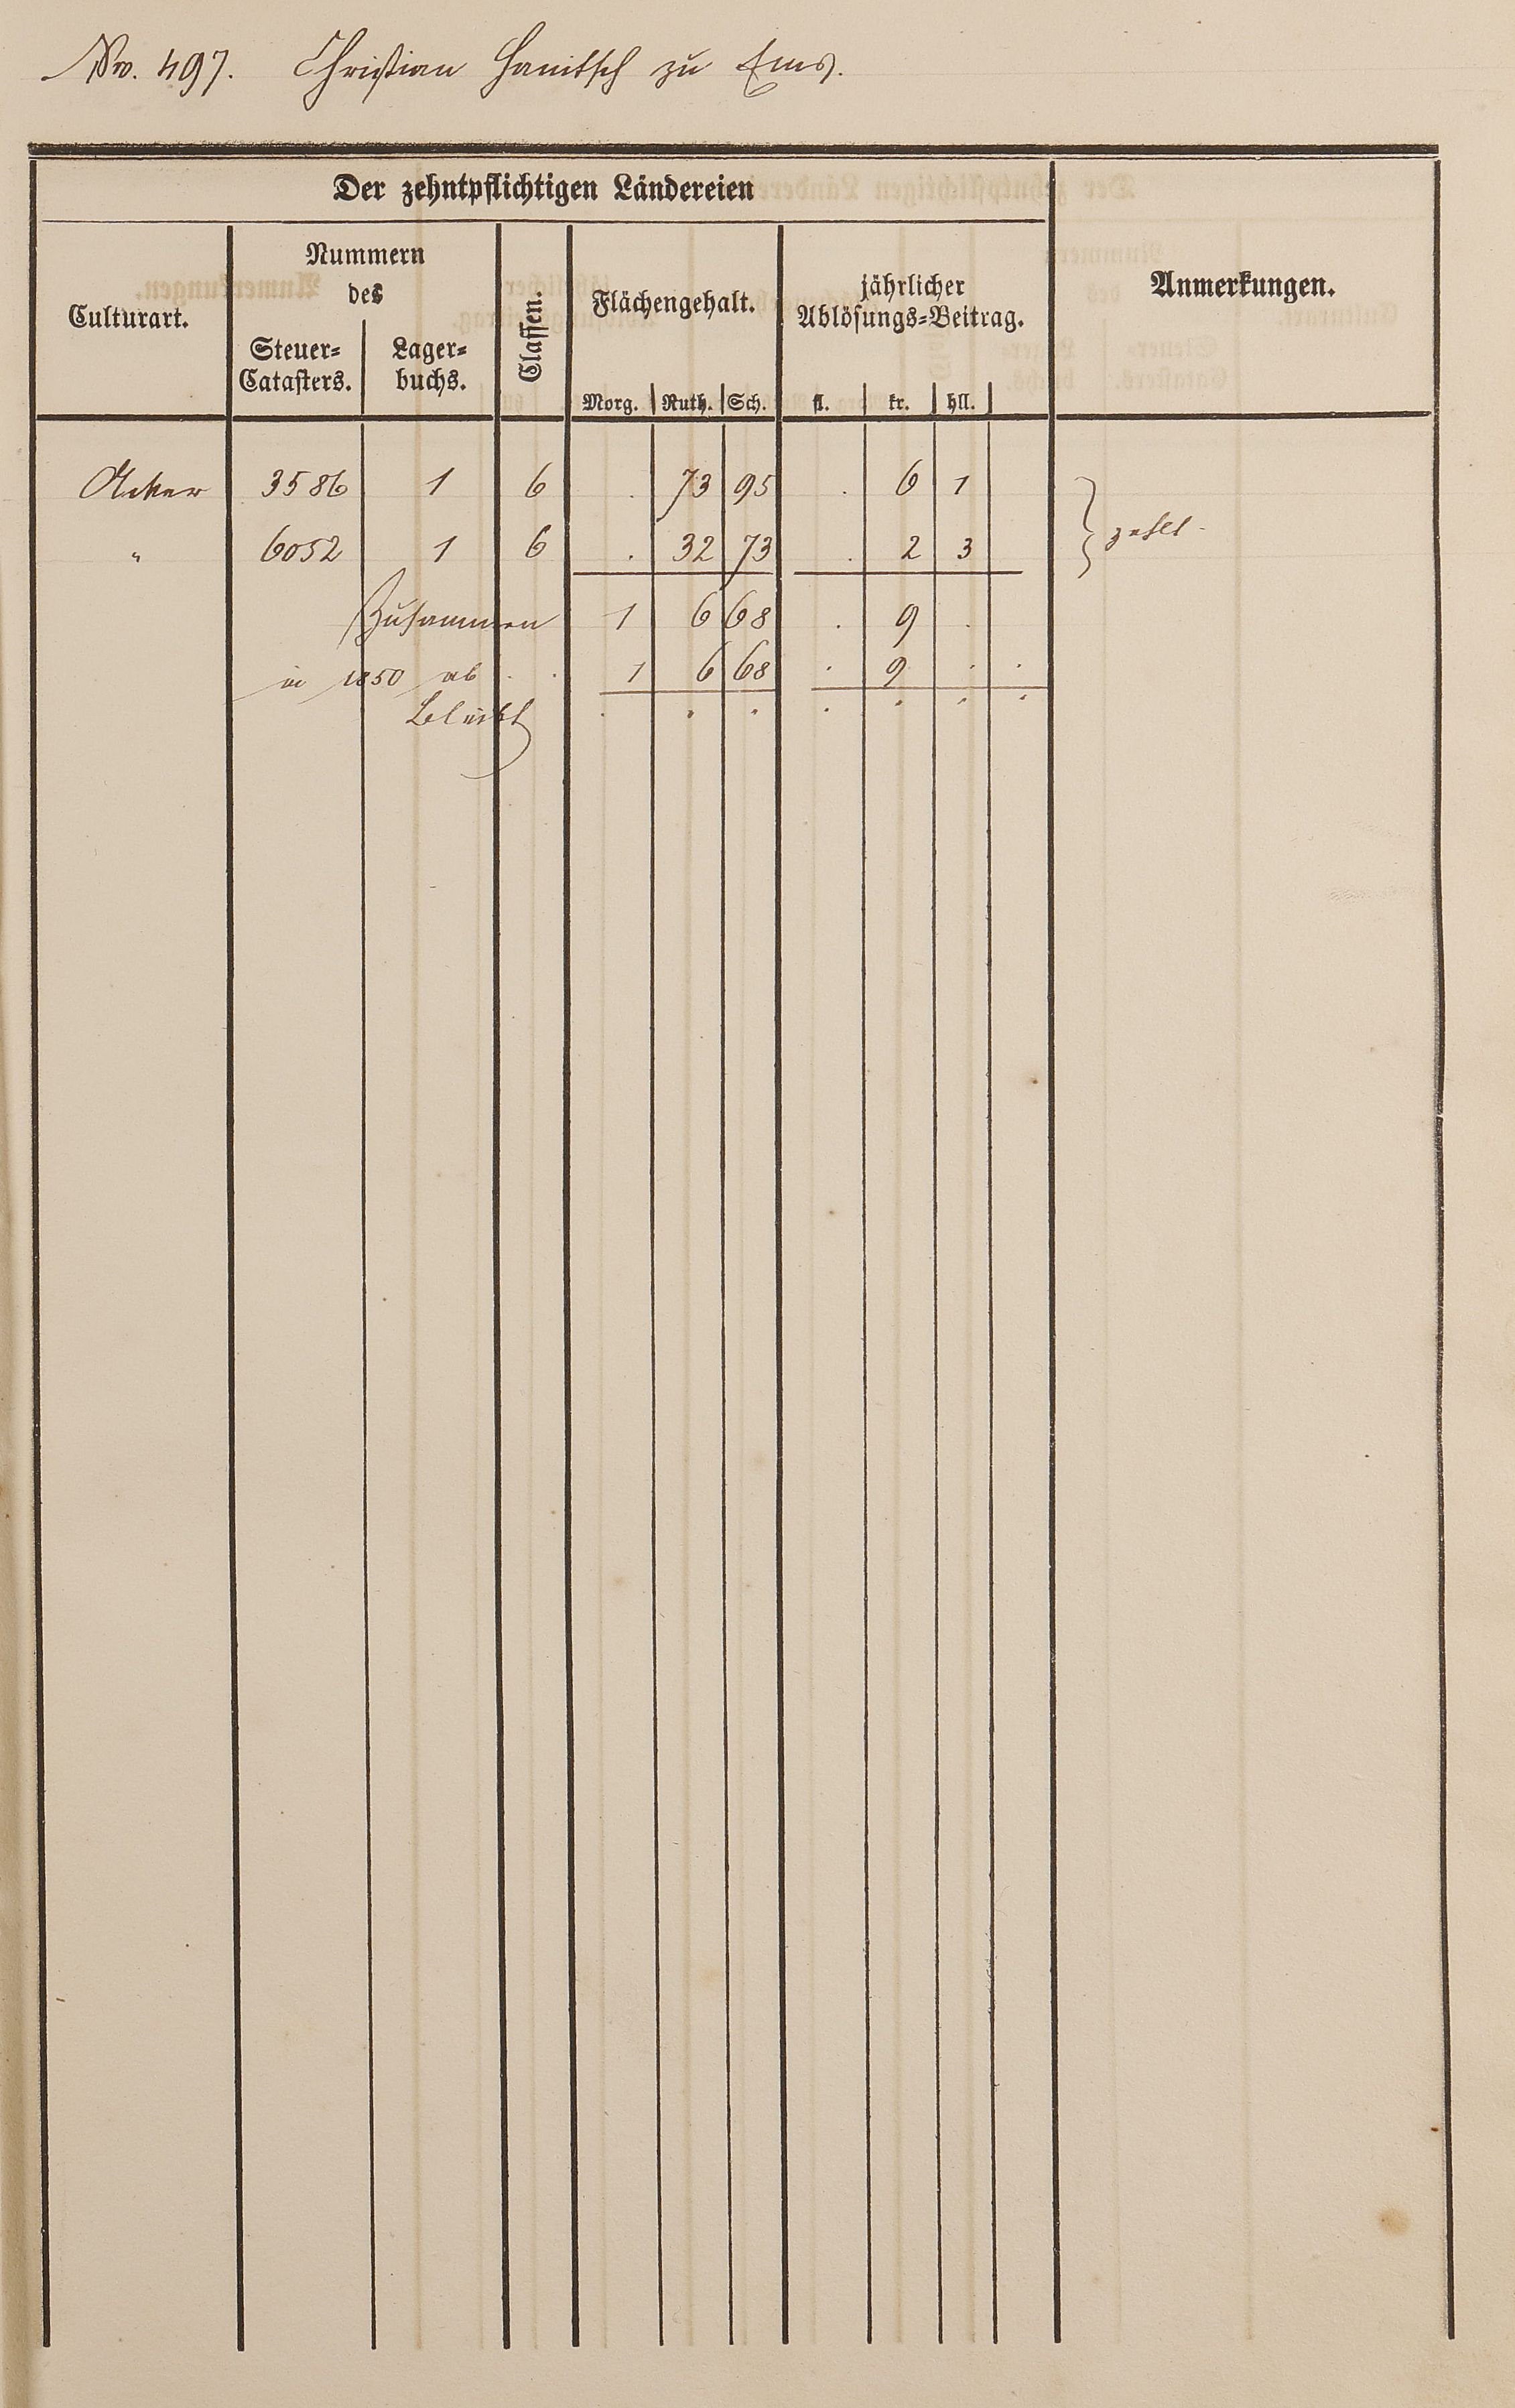 No. 497. Christian Hanitsch zu Ems.
Der zehntpflichtigen Ländereien
Culturart.
Nummern
des
Steuer-
Catasters.
Lager-
buchs.
Classen.
Flächengehalt.
Morg. Ruth. Sch.
jährlicher
Ablösungs-Beitrag.
fl. kr. hll.
Anmerkungen.
Acker 3586 1 6 . 73 95 . 6 1
" 6052 1 6 . 32 73 . 2 3
zahlt.
Zusammen 1 6 68 . 9 .
in 1850 ab . . 1 6 68 . 9 . .
bleibt . . . . . . .